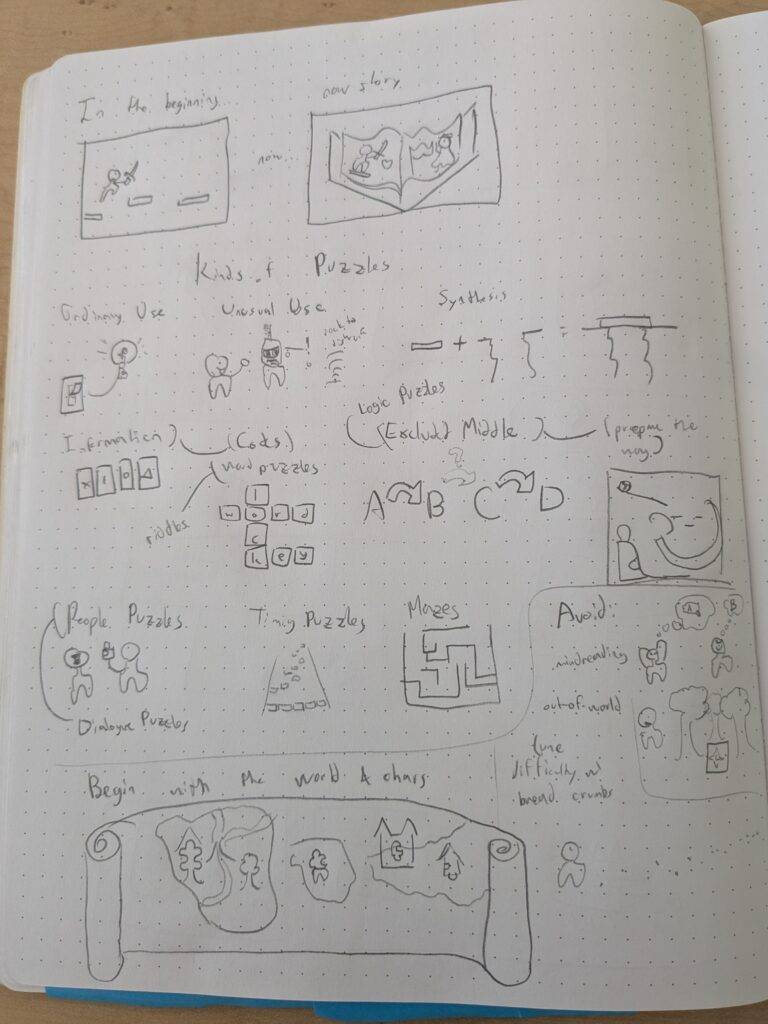 In the beginning
now story
now...
Kinds of Puzzles
Ordinary Use
Unusual Use
Synthesis
+ =
Information
(Codes)
word puzzles
riddles
l
w o r d
c
k e y
Logic Puzzles
(Excluded Middle)
(prepare the
way)
A B C D
(People Puzzles
Dialogue Puzzles
Timing Puzzles
Mazes
Avoid:
mindreading
A
B
out-of-world
tune
difficulty w/
bread crumbs
Begin with the world & chars